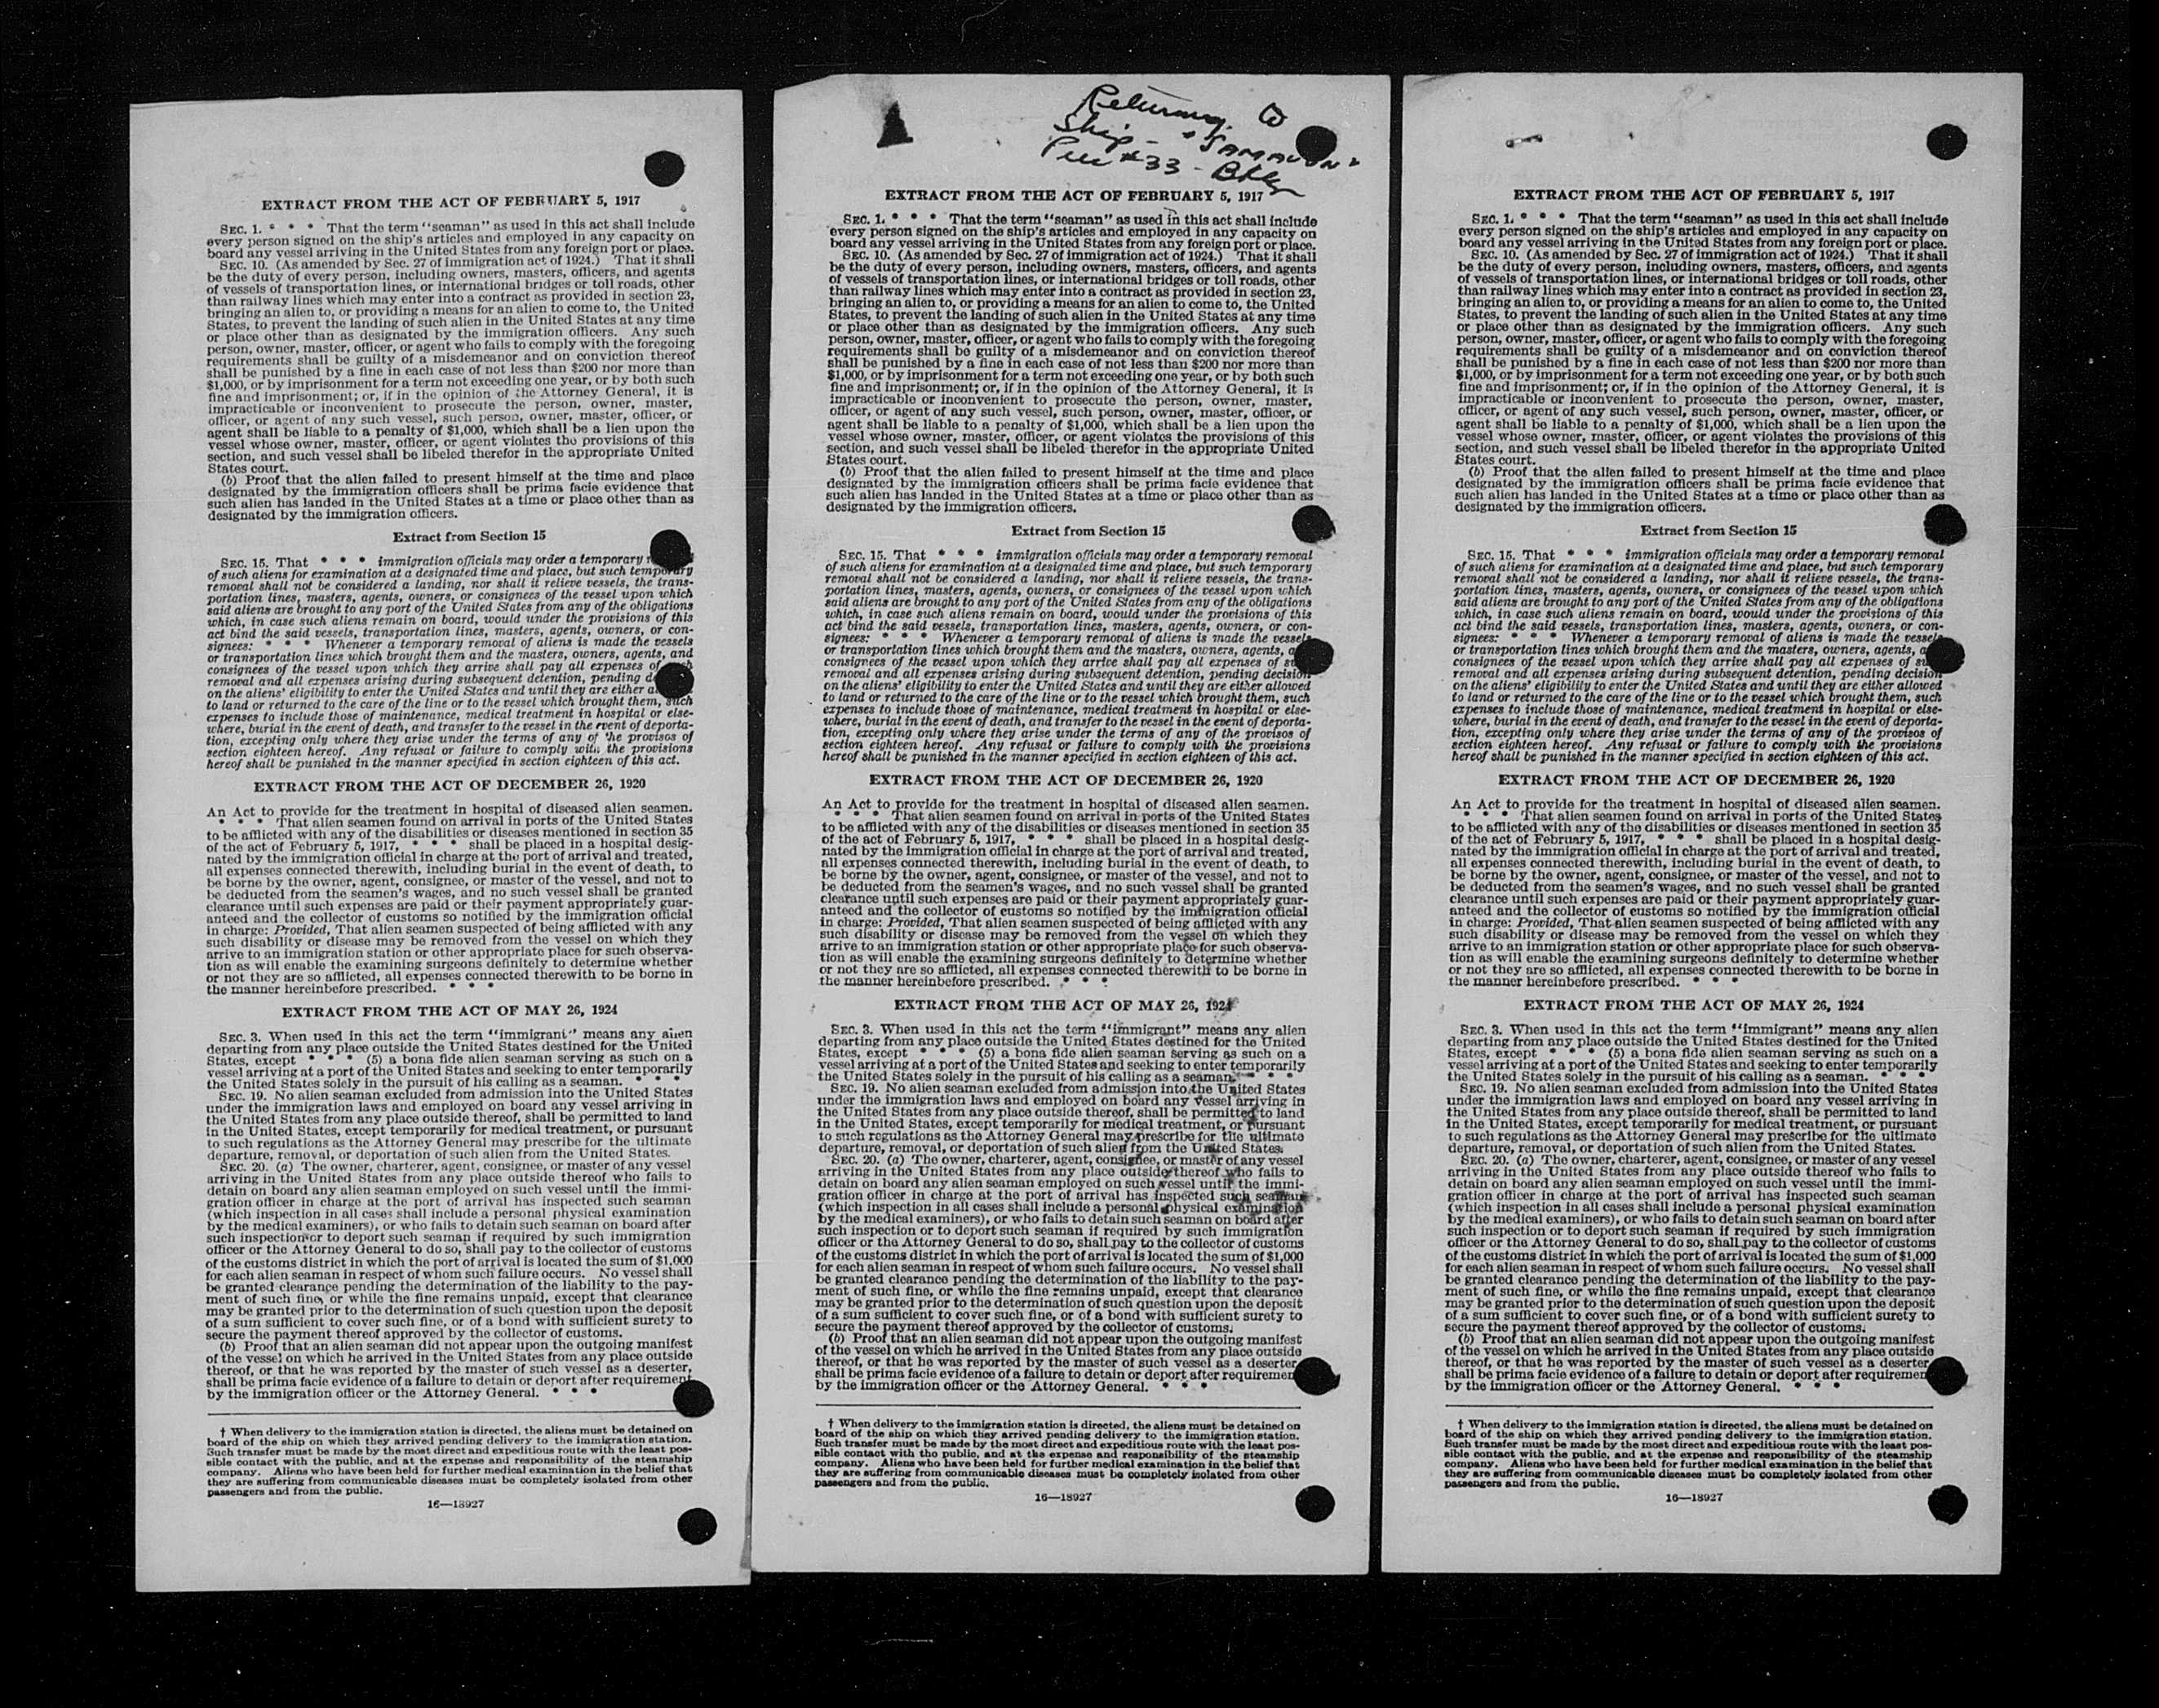 EXTRACT FROM THE ACT OF FEBRUARY 5, 1917
SEC. 1. * * * That the term "seaman" as used in this act shall include
every person signed on the ship's articles and employed in any capacity on
board any vessel arriving in the United States from any foreign port or place.
SEC. 10. (As amended by Sec. 27 of immigration act of 1924.) That it shall
be the duty of every person, including owners, masters, officers, and agents
of vessels of transportation lines, or international bridges or toll roads, other
than railway lines which may enter into a contract as provided in section 23,
bringing an alien to, or providing a means for an alien to come to, the United
States, to prevent the landing of such alien in the United States at any time
or place other than as designated by the immigration officers. Any such
person, owner, master, officer, or agent who fails to comply with the foregoing
requirements shall be guilty of a misdemeanor and on conviction thereof
shall be punished by a fine in each case of not less than $200 nor more than
$1,000, or by imprisonment for a term not exceeding one year, or by both such
fine and imprisonment; or, if in the opinion of the Attorney General, it is
impracticable or inconvenient to prosecute the person, owner, master,
officer, or agent of any such vessel, such person, owner, master, officer, or
agent shall be liable to a penalty of $1,000, which shall be a lien upon the
vessel whose owner, master, officer, or agent violates the provisions of this
section, and such vessel shall be libeled therefor in the appropriate United
States court.
(b) Proof that the alien failed to present himself at the time and place
designated by the immigration officers shall be prima facie evidence that
such alien has landed in the United States at a time or place other than as
designated by the immigration officers.
Extract from Section 15
SEC. 15. That * * * immigration officials may order a temporary
of such aliens for examination at a designated time and place, but such temporary
removal shall not be considered a landing, nor shall it relieve vessels, the trans-
portation lines, masters, agents, owners, or consignees of the vessel upon which
said aliens are brought to any port of the United States from any of the obligations
which, in case such aliens remain on board, would under the provisions of this
act bind the said vessels, transportation lines, masters, agents, owners, or con-
signees: * * * Whenever a temporary removal of aliens is made the vessels
or transportation lines which brought them and the masters, owners, agents, and
consignees of the vessel upon which they arrive shall pay all expenses of such
removal and all expenses arising during subsequent detention, pending
on the aliens' eligibility to enter the United States and until they are either
to land or returned to the care of the line or to the vessel which brought them, such
expenses to include those of maintenance, medical treatment in hospital or else-
where, burial in the event of death, and transfer to the vessel in the event of deporta-
tion, excepting only where they arise under the terms of any of the provisos of
section eighteen hereof. Any refusal or failure to comply with the provisions
hereof shall be punished in the manner specified in section eighteen of this act.
EXTRACT FROM THE ACT OF DECEMBER 26, 1920
An Act to provide for the treatment in hospital of diseased alien seamen.
* * * That alien seamen found on arrival in ports of the United States
to be afflicted with any of the disabilities or diseases mentioned in section 35
of the act of February 5, 1917, * * * shall be placed in a hospital desig-
nated by the immigration official in charge at the port of arrival and treated,
all expenses connected therewith, including burial in the event of death, to
be borne by the owner, agent, consignee, or master of the vessel, and not to
be deducted from the seamen's wages, and no such vessel shall be granted
clearance until such expenses are paid or their payment appropriately guar-
anteed and the collector of customs so notified by the immigration official
in charge: Provided, That alien seamen suspected of being afflicted with any
such disability or disease may be removed from the vessel on which they
arrive to an immigration station or other appropriate place for such observa-
tion as will enable the examining surgeons definitely to determine whether
or not they are so afflicted, all expenses connected therewith to be borne in
the manner hereinbefore prescribed. * * *
EXTRACT FROM THE ACT OF MAY 26, 1924
SEC. 3. When used in this act the term "immigrant" means any alien
departing from any place outside the United States destined for the United
States, except * * * (5) a bona fide alien seaman serving as such on a
vessel arriving at a port of the United States and seeking to enter temporarily
the United States solely in the pursuit of his calling as a seaman. * * *
SEC. 19. No alien seaman excluded from admission into the United States
under the immigration laws and employed on board any vessel arriving in
the United States from any place outside thereof, shall be permitted to land
in the United States, except temporarily for medical treatment, or pursuant
to such regulations as the Attorney General may prescribe for the ultimate
departure, removal, or deportation of such alien from the United States.
SEC. 20. (a) The owner, charterer, agent, consignee, or master of any vessel
arriving in the United States from any place outside thereof who fails to
detain on board any alien seaman employed on such vessel until the immi-
gration officer in charge at the port of arrival has inspected such seaman
(which inspection in all cases shall include a personal physical examination
by the medical examiners), or who fails to detain such seaman on board after
such inspection or to deport such seaman if required by such immigration
officer or the Attorney General to do so, shall pay to the collector of customs
of the customs district in which the port of arrival is located the sum of $1,000
for each alien seaman in respect of whom such failure occurs. No vessel shall
be granted clearance pending the determination of the liability to the pay-
ment of such fine, or while the fine remains unpaid, except that clearance
may be granted prior to the determination of such question upon the deposit
of a sum sufficient to cover such fine, or of a bond with sufficient surety to
secure the payment thereof approved by the collector of customs.
(b) Proof that an alien seaman did not appear upon the outgoing manifest
of the vessel on which he arrived in the United States from any place outside
thereof, or that he was reported by the master of such vessel as a deserter,
shall be prima facie evidence of a failure to detain or deport after requirement
by the immigration officer or the Attorney General. * * *
† When delivery to the immigration station is directed, the aliens must be detained on
board of the ship on which they arrived pending delivery to the immigration station.
Such transfer must be made by the most direct and expeditious route with the least pos-
sible contact with the public, and at the expense and responsibility of the steamship
company. Aliens who have been held for further medical examination in the belief that
they are suffering from communicable diseases must be completely isolated from other
passengers and from the public.
16—18927
Returning to
Ship -
#33 -
EXTRACT FROM THE ACT OF FEBRUARY 5, 1917
SEC. 1. * * * That the term "seaman" as used in this act shall include
every person signed on the ship's articles and employed in any capacity on
board any vessel arriving in the United States from any foreign port or place.
SEC. 10. (As amended by Sec. 27 of immigration act of 1924.) That it shall
be the duty of every person, including owners, masters, officers, and agents
of vessels of transportation lines, or international bridges or toll roads, other
than railway lines which may enter into a contract as provided in section 23,
bringing an alien to, or providing a means for an alien to come to, the United
States, to prevent the landing of such alien in the United States at any time
or place other than as designated by the immigration officers. Any such
person, owner, master, officer, or agent who fails to comply with the foregoing
requirements shall be guilty of a misdemeanor and on conviction thereof
shall be punished by a fine in each case of not less than $200 nor more than
$1,000, or by imprisonment for a term not exceeding one year, or by both such
fine and imprisonment; or, if in the opinion of the Attorney General, it is
impracticable or inconvenient to prosecute the person, owner, master,
officer, or agent of any such vessel, such person, owner, master, officer, or
agent shall be liable to a penalty of $1,000, which shall be a lien upon the
vessel whose owner, master, officer, or agent violates the provisions of this
section, and such vessel shall be libeled therefor in the appropriate United
States court.
(b) Proof that the alien failed to present himself at the time and place
designated by the immigration officers shall be prima facie evidence that
such alien has landed in the United States at a time or place other than as
designated by the immigration officers.
Extract from Section 15
SEC. 15. That * * * immigration officials may order a temporary removal
of such aliens for examination at a designated time and place, but such temporary
removal shall not be considered a landing, nor shall it relieve vessels, the trans-
portation lines, masters, agents, owners, or consignees of the vessel upon which
said aliens are brought to any port of the United States from any of the obligations
which, in case such aliens remain on board, would under the provisions of this
act bind the said vessels, transportation lines, masters, agents, owners, or con-
signees: * * * Whenever a temporary removal of aliens is made the vessels
or transportation lines which brought them and the masters, owners, agents,
consignees of the vessel upon which they arrive shall pay all expenses of
removal and all expenses arising during subsequent detention, pending decision
on the aliens' eligibility to enter the United States and until they are either allowed
to land or returned to the care of the line or to the vessel which brought them, such
expenses to include those of maintenance, medical treatment in hospital or else-
where, burial in the event of death, and transfer to the vessel in the event of deporta-
tion, excepting only where they arise under the terms of any of the provisos of
section eighteen hereof. Any refusal or failure to comply with the provisions
hereof shall be punished in the manner specified in section eighteen of this act.
EXTRACT FROM THE ACT OF DECEMBER 26, 1920
An Act to provide for the treatment in hospital of diseased alien seamen.
* * * That alien seamen found on arrival in ports of the United States
to be afflicted with any of the disabilities or diseases mentioned in section 35
of the act of February 5, 1917, * * * shall be placed in a hospital desig-
nated by the immigration official in charge at the port of arrival and treated,
all expenses connected therewith, including burial in the event of death, to
be borne by the owner, agent, consignee, or master of the vessel, and not to
be deducted from the seamen's wages, and no such vessel shall be granted
clearance until such expenses are paid or their payment appropriately guar-
anteed and the collector of customs so notified by the immigration official
in charge: Provided, That alien seamen suspected of being afflicted with any
such disability or disease may be removed from the vessel on which they
arrive to an immigration station or other appropriate place for such observa-
tion as will enable the examining surgeons definitely to determine whether
or not they are so afflicted, all expenses connected therewith to be borne in
the manner hereinbefore prescribed. * * *
EXTRACT FROM THE ACT OF MAY 26, 1924
SEC. 3. When used in this act the term "immigrant" means any alien
departing from any place outside the United States destined for the United
States, except * * * (5) a bona fide alien seaman serving as such on a
vessel arriving at a port of the United States and seeking to enter temporarily
the United States solely in the pursuit of his calling as a seaman. * * *
SEC. 19. No alien seaman excluded from admission into the United States
under the immigration laws and employed on board any vessel arriving in
the United States from any place outside thereof, shall be permitted to land
in the United States, except temporarily for medical treatment, or pursuant
to such regulations as the Attorney General may prescribe for the ultimate
departure, removal, or deportation of such alien from the United States.
SEC. 20. (a) The owner, charterer, agent, consignee, or master of any vessel
arriving in the United States from any place outside thereof who fails to
detain on board any alien seaman employed on such vessel until the immi-
gration officer in charge at the port of arrival has inspected such seaman
(which inspection in all cases shall include a personal physical examination
by the medical examiners), or who fails to detain such seaman on board after
such inspection or to deport such seaman if required by such immigration
officer or the Attorney General to do so, shall pay to the collector of customs
of the customs district in which the port of arrival is located the sum of $1,000
for each alien seaman in respect of whom such failure occurs. No vessel shall
be granted clearance pending the determination of the liability to the pay-
ment of such fine, or while the fine remains unpaid, except that clearance
may be granted prior to the determination of such question upon the deposit
of a sum sufficient to cover such fine, or of a bond with sufficient surety to
secure the payment thereof approved by the collector of customs.
(b) Proof that an alien seaman did not appear upon the outgoing manifest
of the vessel on which he arrived in the United States from any place outside
thereof, or that he was reported by the master of such vessel as a deserter,
shall be prima facie evidence of a failure to detain or deport after requirement
by the immigration officer or the Attorney General. * * *
† When delivery to the immigration station is directed, the aliens must be detained on
board of the ship on which they arrived pending delivery to the immigration station.
Such transfer must be made by the most direct and expeditious route with the least pos-
sible contact with the public, and at the expense and responsibility of the steamship
company. Aliens who have been held for further medical examination in the belief that
they are suffering from communicable diseases must be completely isolated from other
passengers and from the public.
16—18927
EXTRACT FROM THE ACT OF FEBRUARY 5, 1917
SEC. 1. * * * That the term "seaman" as used in this act shall include
every person signed on the ship's articles and employed in any capacity on
board any vessel arriving in the United States from any foreign port or place.
SEC. 10. (As amended by Sec. 27 of immigration act of 1924.) That it shall
be the duty of every person, including owners, masters, officers, and agents
of vessels of transportation lines, or international bridges or toll roads, other
than railway lines which may enter into a contract as provided in section 23,
bringing an alien to, or providing a means for an alien to come to, the United
States, to prevent the landing of such alien in the United States at any time
or place other than as designated by the immigration officers. Any such
person, owner, master, officer, or agent who fails to comply with the foregoing
requirements shall be guilty of a misdemeanor and on conviction thereof
shall be punished by a fine in each case of not less than $200 nor more than
$1,000, or by imprisonment for a term not exceeding one year, or by both such
fine and imprisonment; or, if in the opinion of the Attorney General, it is
impracticable or inconvenient to prosecute the person, owner, master,
officer, or agent of any such vessel, such person, owner, master, officer, or
agent shall be liable to a penalty of $1,000, which shall be a lien upon the
vessel whose owner, master, officer, or agent violates the provisions of this
section, and such vessel shall be libeled therefor in the appropriate United
States court.
(b) Proof that the alien failed to present himself at the time and place
designated by the immigration officers shall be prima facie evidence that
such alien has landed in the United States at a time or place other than as
designated by the immigration officers.
Extract from Section 15
SEC. 15. That * * * immigration officials may order a temporary removal
of such aliens for examination at a designated time and place, but such temporary
removal shall not be considered a landing, nor shall it relieve vessels, the trans-
portation lines, masters, agents, owners, or consignees of the vessel upon which
said aliens are brought to any port of the United States from any of the obligations
which, in case such aliens remain on board, would under the provisions of this
act bind the said vessels, transportation lines, masters, agents, owners, or con-
signees: * * * Whenever a temporary removal of aliens is made the vessels
or transportation lines which brought them and the masters, owners, agents,
consignees of the vessel upon which they arrive shall pay all expenses of
removal and all expenses arising during subsequent detention, pending decision
on the aliens' eligibility to enter the United States and until they are either allowed
to land or returned to the care of the line or to the vessel which brought them, such
expenses to include those of maintenance, medical treatment in hospital or else-
where, burial in the event of death, and transfer to the vessel in the event of deporta-
tion, excepting only where they arise under the terms of any of the provisos of
section eighteen hereof. Any refusal or failure to comply with the provisions
hereof shall be punished in the manner specified in section eighteen of this act.
EXTRACT FROM THE ACT OF DECEMBER 26, 1920
An Act to provide for the treatment in hospital of diseased alien seamen.
* * * That alien seamen found on arrival in ports of the United States
to be afflicted with any of the disabilities or diseases mentioned in section 35
of the act of February 5, 1917, * * * shall be placed in a hospital desig-
nated by the immigration official in charge at the port of arrival and treated,
all expenses connected therewith, including burial in the event of death, to
be borne by the owner, agent, consignee, or master of the vessel, and not to
be deducted from the seamen's wages, and no such vessel shall be granted
clearance until such expenses are paid or their payment appropriately guar-
anteed and the collector of customs so notified by the immigration official
in charge: Provided, That alien seamen suspected of being afflicted with any
such disability or disease may be removed from the vessel on which they
arrive to an immigration station or other appropriate place for such observa-
tion as will enable the examining surgeons definitely to determine whether
or not they are so afflicted, all expenses connected therewith to be borne in
the manner hereinbefore prescribed. * * *
EXTRACT FROM THE ACT OF MAY 26, 1924
SEC. 3. When used in this act the term "immigrant" means any alien
departing from any place outside the United States destined for the United
States, except * * * (5) a bona fide alien seaman serving as such on a
vessel arriving at a port of the United States and seeking to enter temporarily
the United States solely in the pursuit of his calling as a seaman. * * *
SEC. 19. No alien seaman excluded from admission into the United States
under the immigration laws and employed on board any vessel arriving in
the United States from any place outside thereof, shall be permitted to land
in the United States, except temporarily for medical treatment, or pursuant
to such regulations as the Attorney General may prescribe for the ultimate
departure, removal, or deportation of such alien from the United States.
SEC. 20. (a) The owner, charterer, agent, consignee, or master of any vessel
arriving in the United States from any place outside thereof who fails to
detain on board any alien seaman employed on such vessel until the immi-
gration officer in charge at the port of arrival has inspected such seaman
(which inspection in all cases shall include a personal physical examination
by the medical examiners), or who fails to detain such seaman on board after
such inspection or to deport such seaman if required by such immigration
officer or the Attorney General to do so, shall pay to the collector of customs
of the customs district in which the port of arrival is located the sum of $1,000
for each alien seaman in respect of whom such failure occurs. No vessel shall
be granted clearance pending the determination of the liability to the pay-
ment of such fine, or while the fine remains unpaid, except that clearance
may be granted prior to the determination of such question upon the deposit
of a sum sufficient to cover such fine, or of a bond with sufficient surety to
secure the payment thereof approved by the collector of customs.
(b) Proof that an alien seaman did not appear upon the outgoing manifest
of the vessel on which he arrived in the United States from any place outside
thereof, or that he was reported by the master of such vessel as a deserter,
shall be prima facie evidence of a failure to detain or deport after requirement
by the immigration officer or the Attorney General. * * *
† When delivery to the immigration station is directed, the aliens must be detained on
board of the ship on which they arrived pending delivery to the immigration station.
Such transfer must be made by the most direct and expeditious route with the least pos-
sible contact with the public, and at the expense and responsibility of the steamship
company. Aliens who have been held for further medical examination in the belief that
they are suffering from communicable diseases must be completely isolated from other
passengers and from the public.
16—18927